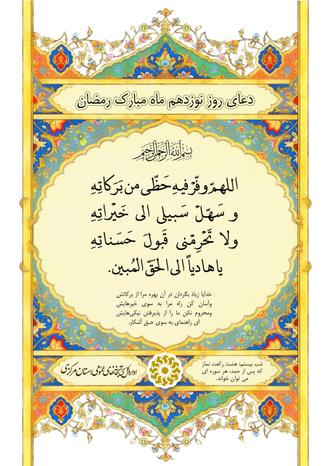 دعای روز نوزدهم ماه مبارک رمضان
بسم الله الرحمن الرحیم
اللهمّ وفّر فیهِ حَظّی مِن بَرَکاتِهِ
و سَهِّلْ سَبیلی الی خَیْراتِهِ
ولا تَحْرِمْنی قَبولَ حَسَناتِهِ
یا هادیاً الی الحَقِّ المُبین.
خدایا زیاد بگردان در آن بهره مرا از برکاتش
وآسان کن راه مرا به سوی خیرهایش
ومحروم نکن ما را از پذیرفتن نیکی‌هایش
ای راهنمای به سوی حق آشکار.
شب بیستم: هشت رکعت نماز
که پس از حمد، هر سوره ای
می توان خواند.
استان مرکزی